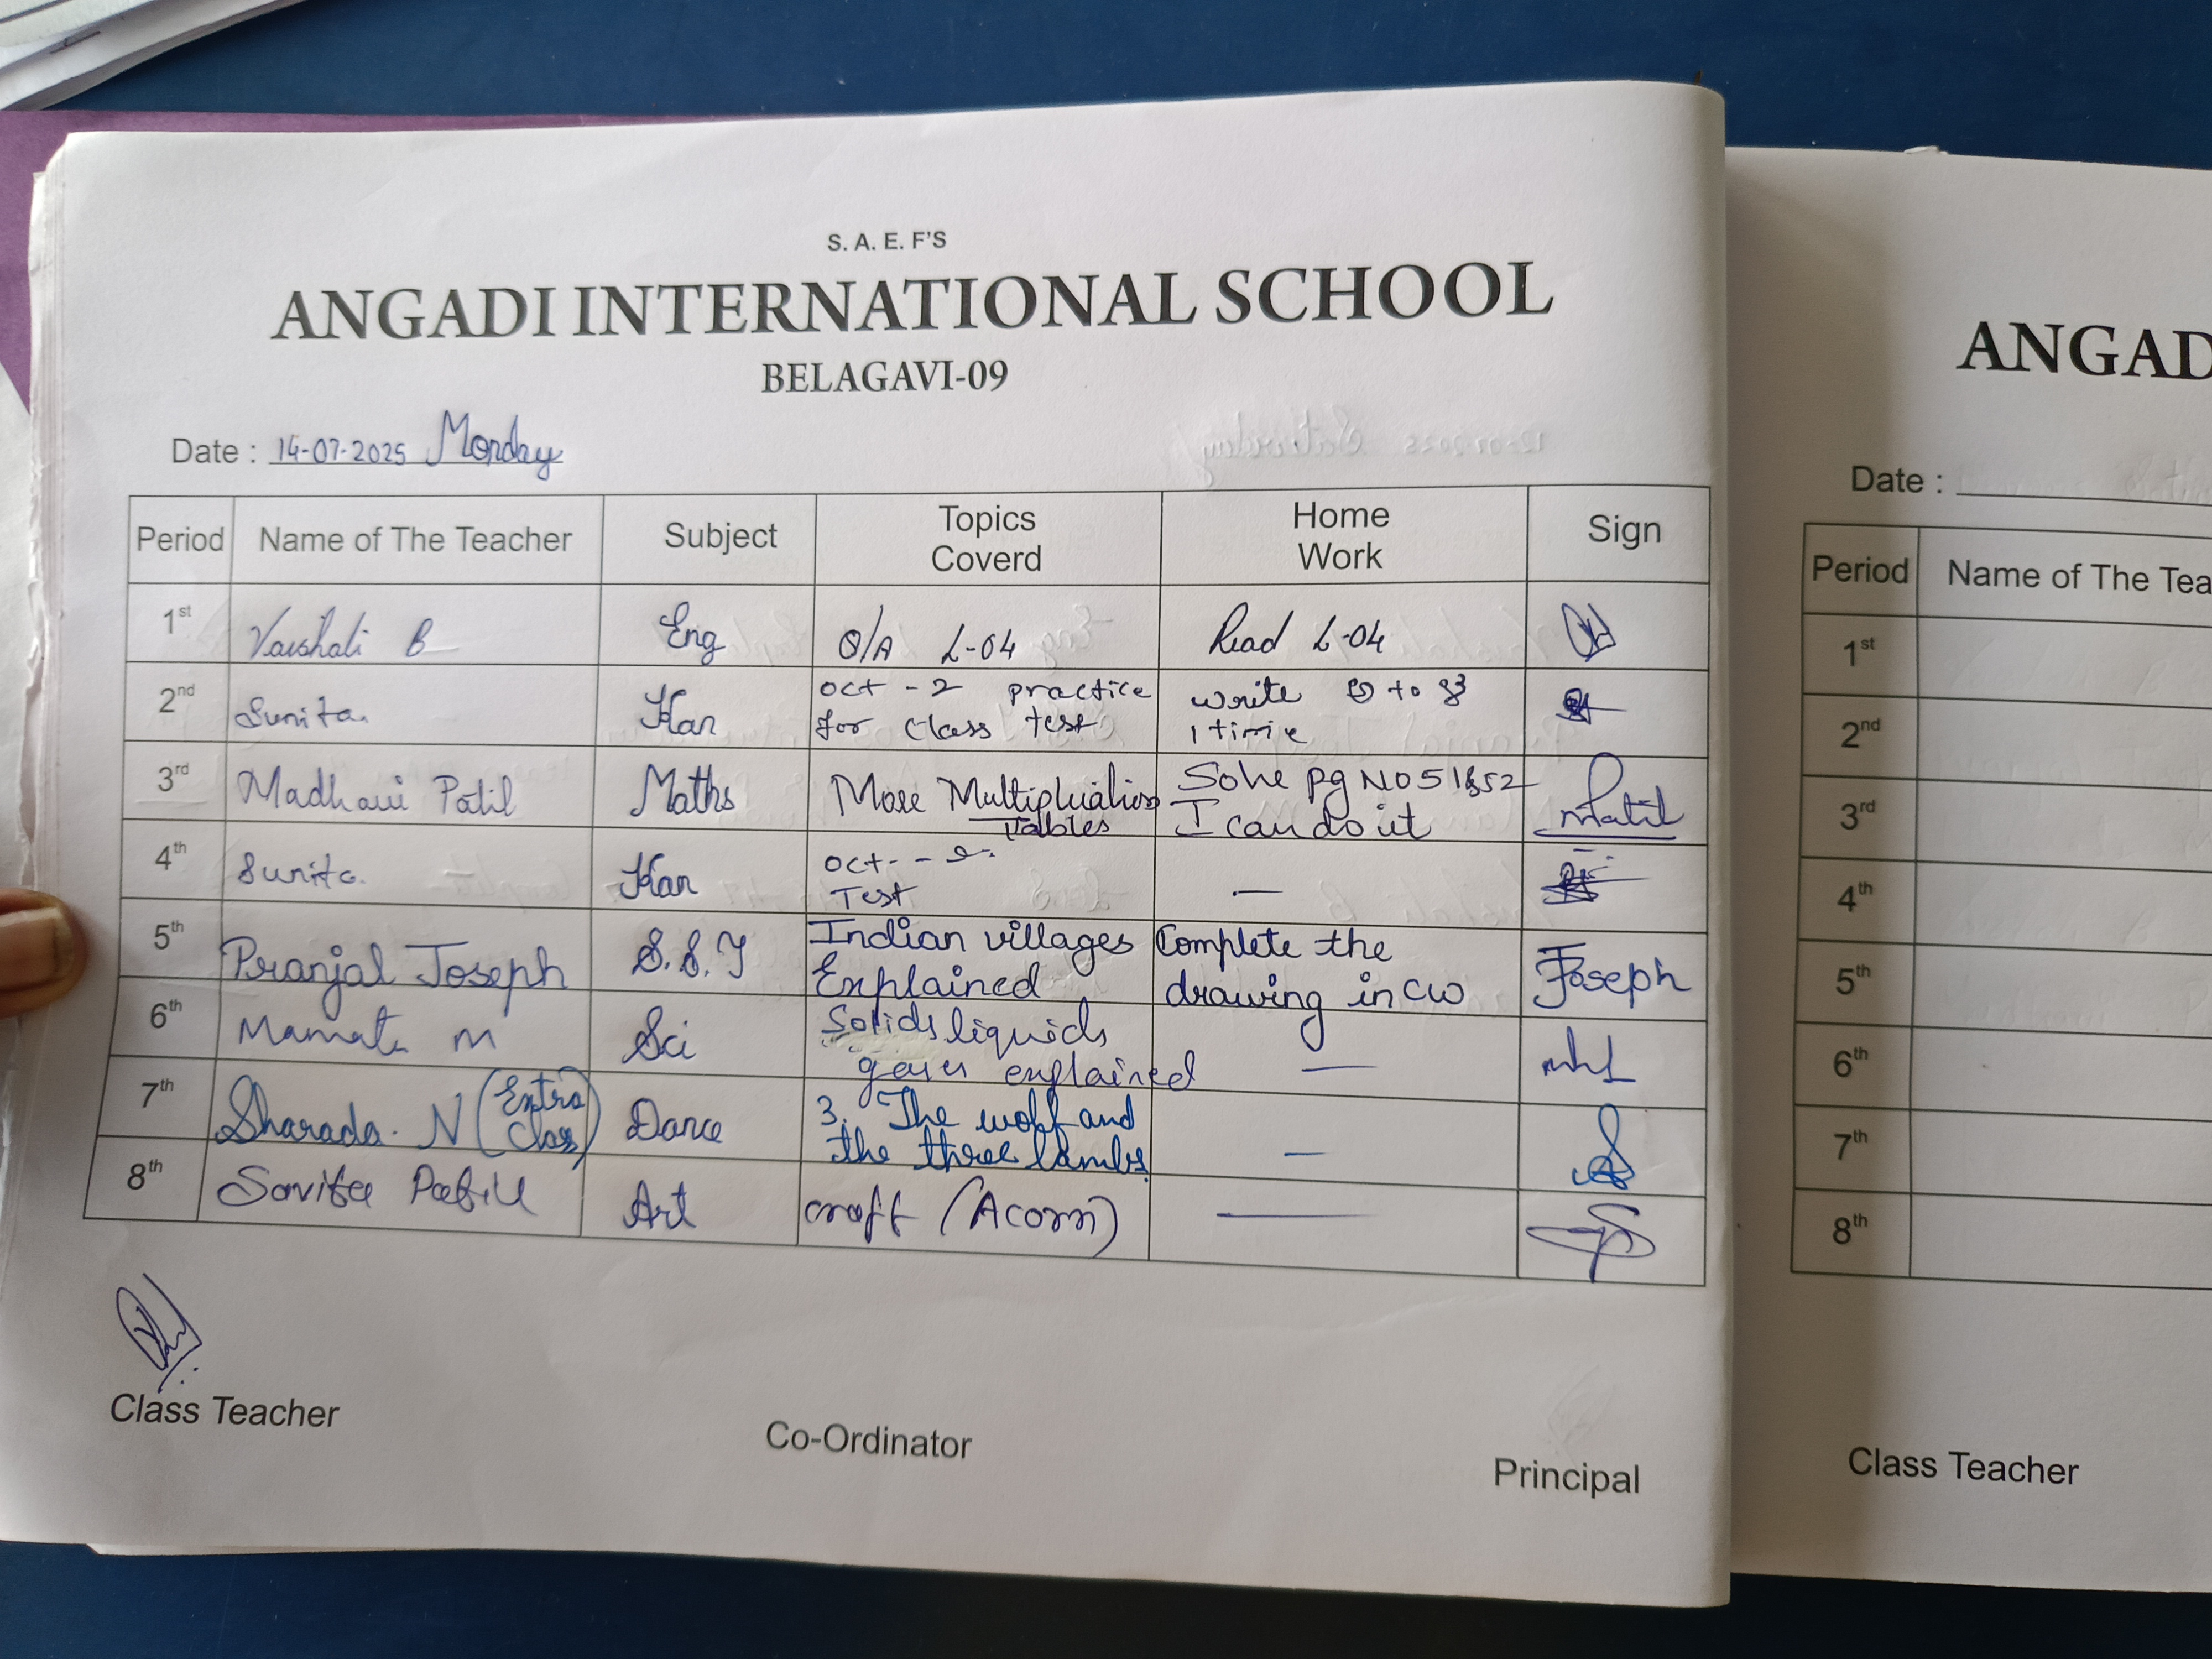 S. A. E. F'S
ANGADI INTERNATIONAL SCHOOL
BELAGAVI-09
Date : 14-07-2025 Monday
Period Name of The Teacher Subject Topics Coverd Home Work Sign
1st Vaishali B Eng Q/A L-04 Read L-04
2nd Sunita Kan oct - 2 practice write to
for class test 1 time
3rd Madhavi Patil Maths More Multiplication Solve pg No 51 & 52 Patil
Tables I can do it
4th Sunita Kan oct-
Test —
5th Pranjal Joseph S.S.T Indian villages Complete the Joseph
Explained drawing in CW
6th Mamata M Sci Solids liquids
gases explained —
7th Sharada. N (Extra Class) Dance 3. The wolf and —
the three lambs.
8th Savita Patil Art craft (Acorn) —
Class Teacher
Co-Ordinator
Principal
ANGAD
Date :
Period Name of The Tea
1st
2nd
3rd
4th
5th
6th
7th
8th
Class Teacher